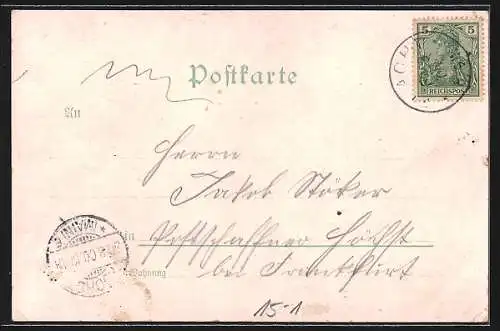 5 5
REICHSPOST
Postkarte
An
Herrn
Jakob Stöker
in Postschaffner Höchst
Wohnung bei Frankfurt
15-1